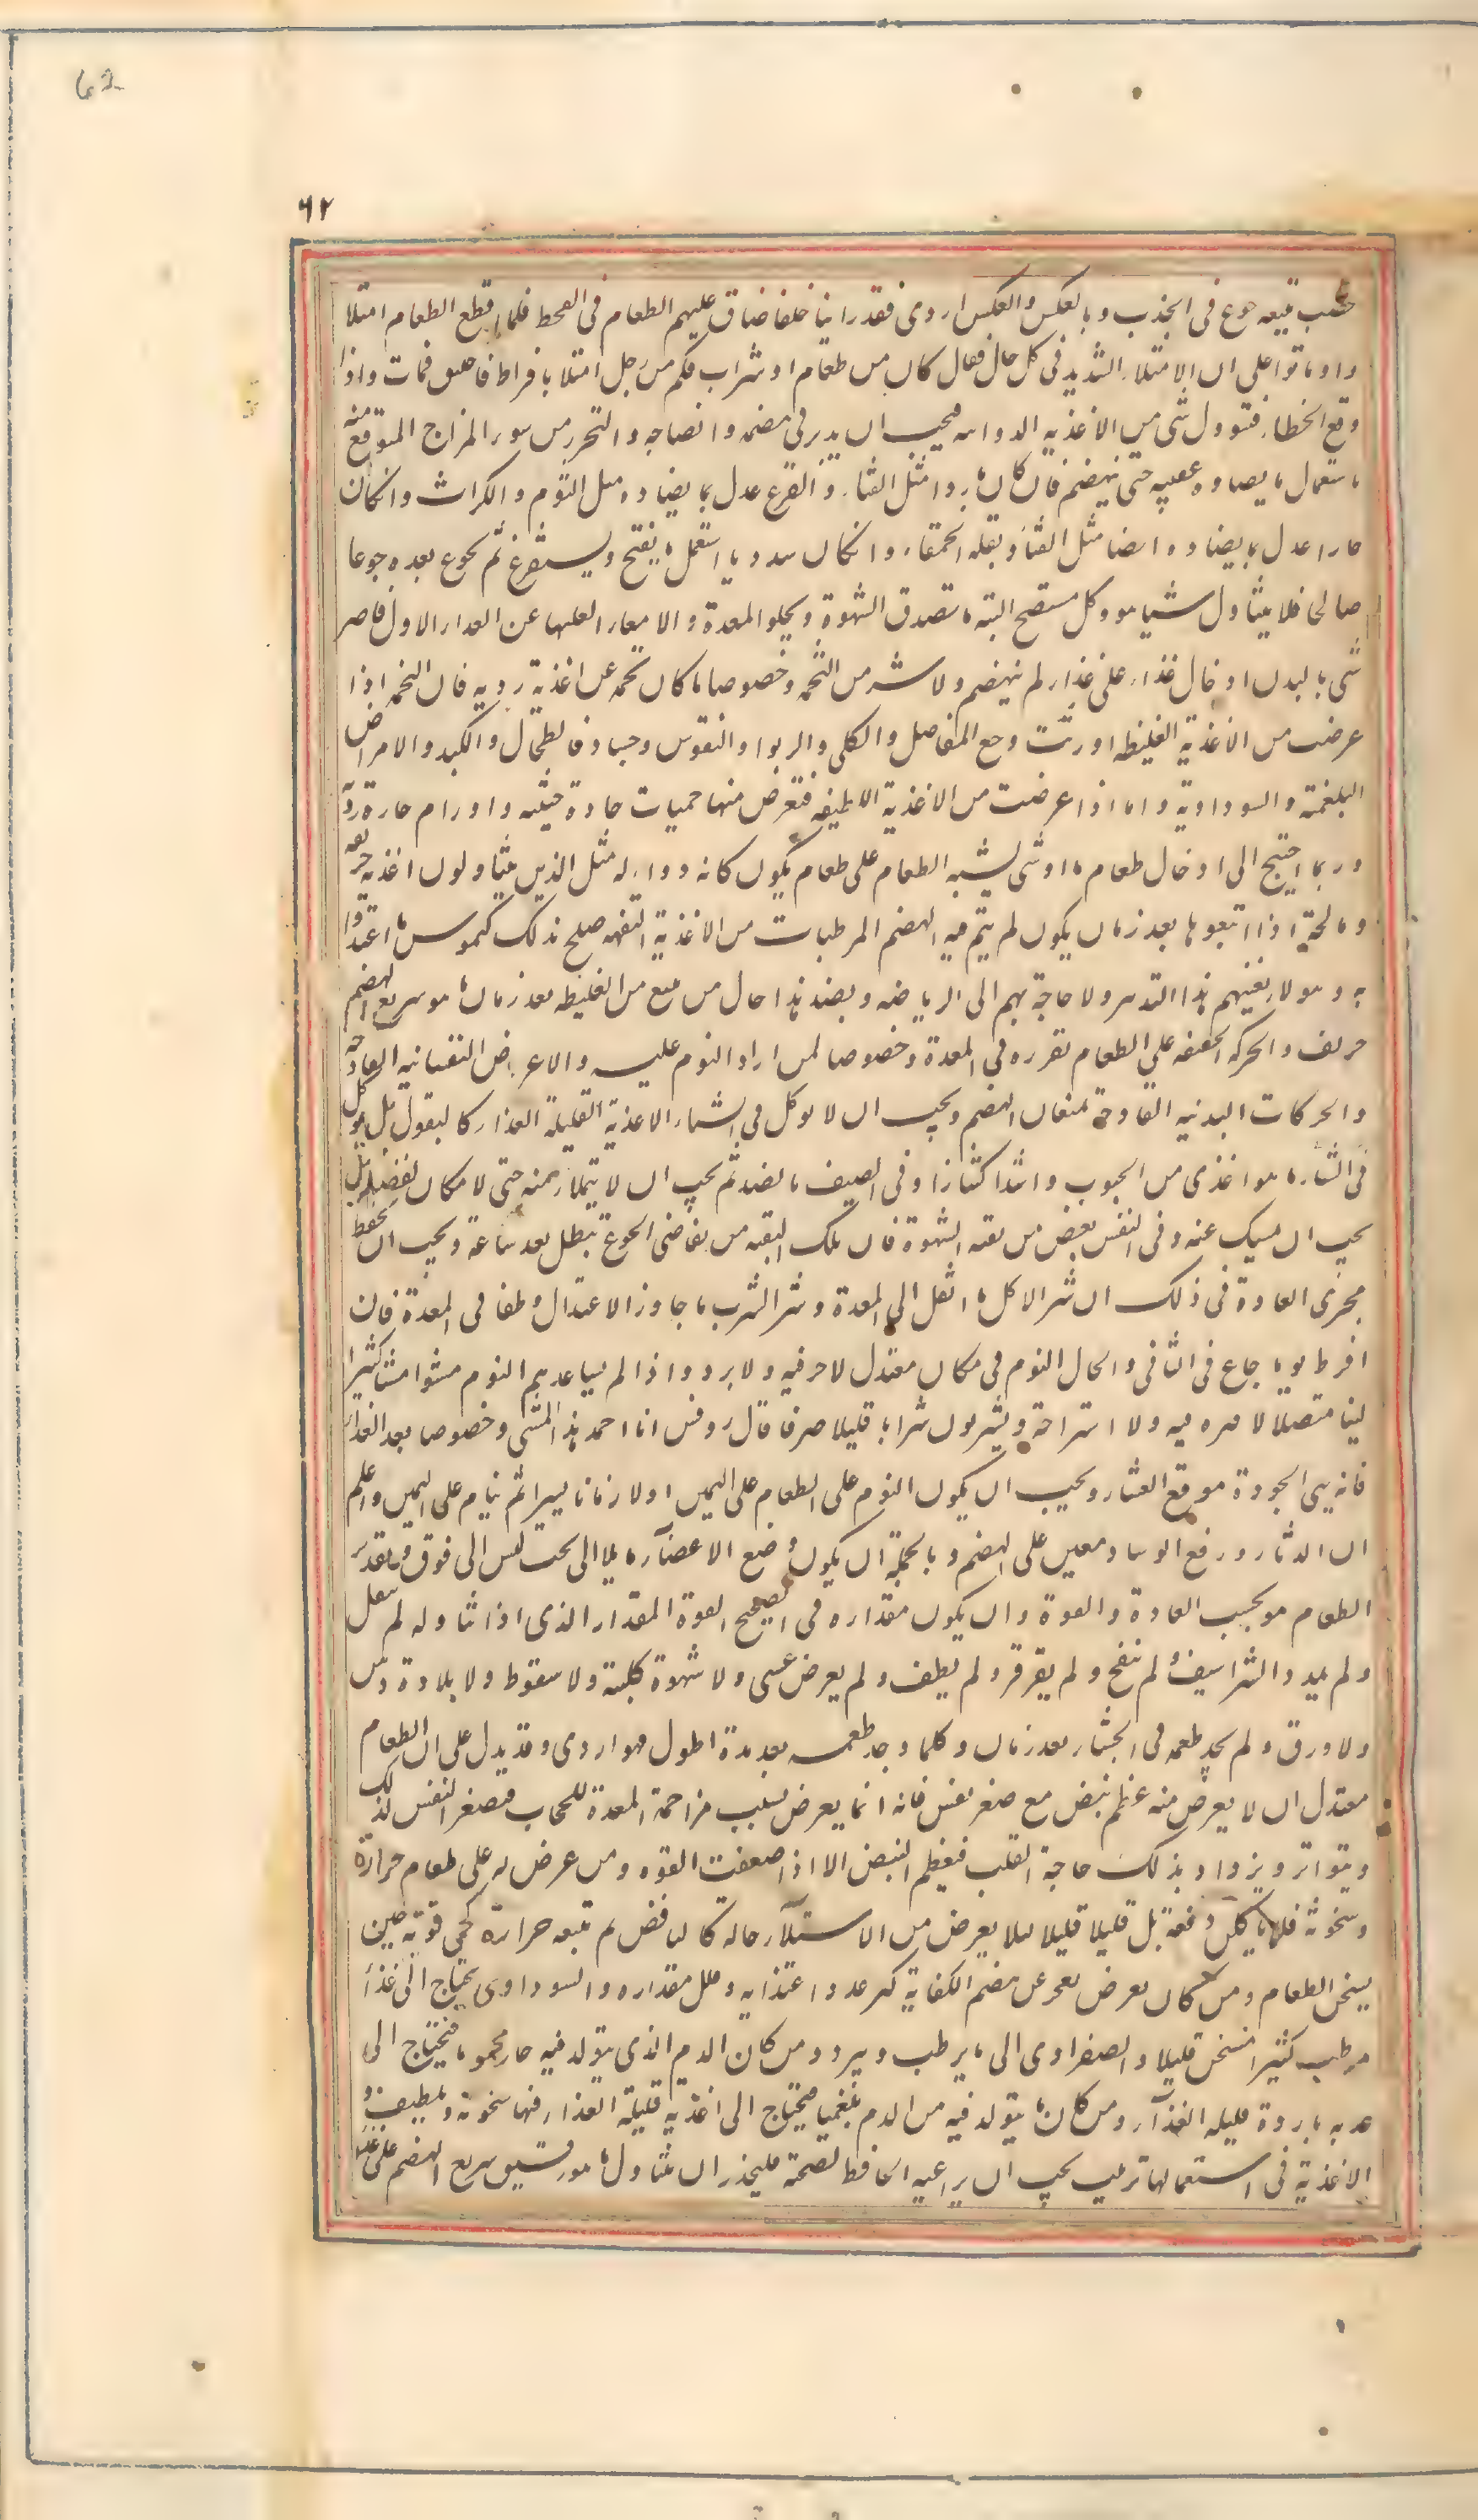 62
٦٢
خصب يتبعه جوع فى الجذب وبالعكس والعكس اردى فقد راينا خلفا ضاق عليهم الطعام فى القحط فلما قطع الطعام امتلا
واوماتوا على ان الامتلاء الشديد فى كل حال قتال كان من طعام او شراب فكم من رجل امتلا بافراط فاختنق فمات واذا
وقع الخطاء فتوول شى من الاغذيه الدوائيه فيجب ان يدبر فى هضمه وانضاجه والتحرز من سوء المزاج المتوقع منه
باستعمال ما يضاده عقيبه حتى ينهضم فان كان باردا مثل القثاء والقرع عدل بما يضاده مثل الثوم والكراث وانكان
حارا عدل بما يضاده ايضا مثل القثا وبقله الحمقاء وانكان سدديا استعمل ما يفتح ويستفرغ ثم يجوع بعده جوعا
صالحا فلا يتناول شيا هو وكل مستصح البته ما تصدق الشهوة ويخلو المعدة والامعاء العليا عن الغداء الاول فاضر
شى بالبدن ادخال غذاء على غذاء لم ينهضم ولا شر من التخمه وخصوصا ما كان تخمه عن اغذية رديه فان التخمه اذا
عرضت من الاغذية الغليظه اورثت وجع المفاصل والكلى والربو والنقرس وجساوة الطحال والكبد والامراض
البلغمية والسوداوية واما اذا عرضت من الاغذية اللطيفه فتعرض منها حميات حادة خبيثه واورام حارة ردية
وربما احتيج الى ادخال طعام ما او شى يشبه الطعام على طعام يكون كانه دواء له مثل الذين يتناولون اغذيه حريفه
ومالحة اذا اتبعوها بعد زمان يكون لم يتم فيه الهضم المرطبات من الاغذية التفهه صلح بذلك كيموس ما اغتذوا
به وهولا يغنيهم هذا التدبير ولا حاجة بهم الى الرياضه وبضد هذا حال من يتبع من الغليظه بعد زمان ما هو سريع الهضم
حريف والحركه الخفيفه على الطعام تقرره فى المعدة وخصوصا لمن اراد النوم عليه والاعراض النفسانيه القادحه
والحركات البدنيه القادحة تمنعان الهضم ويجب ان لا يوكل فى الشتاء الاغذية القليلة الغذاء كالبقول بل يوكل
فى الشتاء ما هو اغذى من الحبوب واشد اكتنازا وفى الصيف بالضد ثم يجب ان لا يتملا منه حتى لا مكان لفضل بل
يجب ان يمسك عنه وفى النفس بعض من بقيه الشهوة فان تلك البقيه من تقاضى الجوع تبطل بعد ساعة ويجب ان يحفظ
مجرى العادة فى ذلك ان شر الاكل ما اثقل المعدة وشر الشرب ما جاوز الاعتدال وطفا فى المعدة فان
افرط يوما جاع فى الثانى واطال النوم فى مكان معتدل لا حر فيه ولا برد واذا لم يساعدهم النوم مشوا مشيا كثيرا
لينا متصلا لا فتره فيه ولا استراحة ويشربون شرابا قليلا صرفا قال روفس انا احمد هذا المشى وخصوصا بعد الغداء
فانه يهيى الجودة موقع العشاء ويجب ان يكون النوم على الطعام على اليمين اولا زمانا يسيرا ثم ينام على اليمين واعلم
ان الدثار ورفع الوساد معين على الهضم وبالجملة ان يكون وضع الاعضاء مايلا الى تحت ليس الى فوق وتقدير
الطعام هو بحسب العادة والقوة وان يكون مقداره فى الصحيح القوة المقدار الذى اذا تناوله لم يثقل
ولم يمدد الشراسيف ولم ينفخ ولم يقرقر ولم يطف ولم يعرض غثى ولا شهوة كلبية ولا سقوط ولا بلادة ذهن
ولا ورق ولم يجد طعمه فى الجشاء بعد زمان وكلما وجد طعمه بعد مدة اطول فهو اردى وقد يدل على ان الطعام
معتدل ان لا يعرض منه عظم نبض مع صغر نفس فانه انما يعرض بسبب مزاحمة المعدة للحجاب فيصغر النفس لذلك
ويتواتر ويزداد بذلك حاجة القلب فيعظم النبض الا اذا ضعفت القوه ومن عرض له على طعام حرارة
وسخونة فلا ياكلن دفعة بل قليلا قليلا ليلا يعرض من الاستلاء حالة كالنافض ثم تتبعه حرارة كحمى قوية حين
يسخن الطعام ومن كان يعرض يعجز عن هضم الكفاية كثر عدد اغتذايه وقلل مقداره والسوداوى يحتاج الى غذا
مرطب كثيرا مسخن قليلا والصفراوى الى ما يرطب ويبرد ومن كان الدم الذى يتولد فيه حارا محموما فيحتاج الى
غديه باردة قليله الغذاء ومن كان ما يتولد فيه من الدم بلغميا فيحتاج الى اغذيه قليلة الغذاء فيها سخونة وتلطيف و
الاغذية فى استعمالها ترتيب يجب ان يراعيه الحافظ لصحته فليحذر ان يتناول ما هو رقيق سريع الهضم على غذا